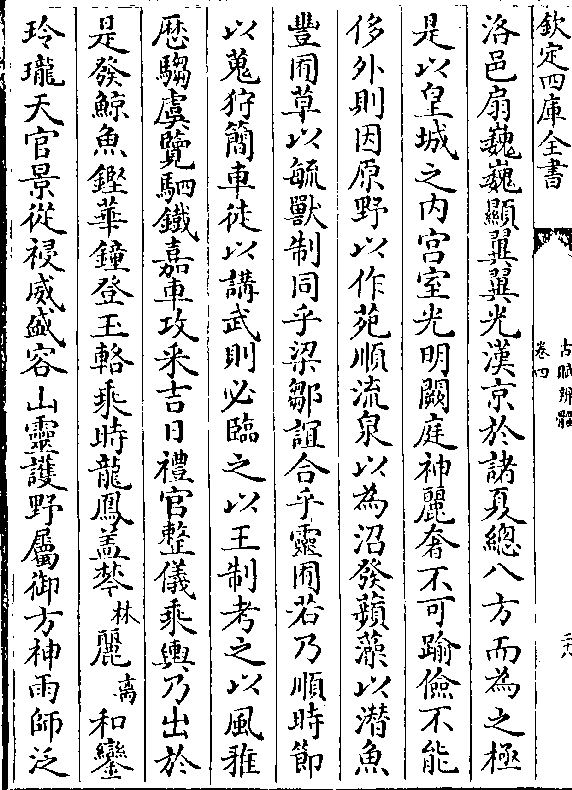 欽定四庫全書
古賦辨體
卷四
洛邑扇巍巍顯翼翼光漢京於諸夏總八方而為之極
是以皇城之内宫室光明闕庭神麗奢不可踰儉不能
侈外則因原野以作苑順流泉以為沼發蘋藻以潛魚
豐圃草以毓獸制同乎梁鄒誼合乎靈囿若乃順時節
以蒐狩簡車徒以講武則必臨之以王制考之以風雅
歴騶虞覽駟鐵嘉車攻采吉日禮官整儀乘輿乃出於
是發鯨魚鏗華鐘登玉輅乘時龍鳳盖棽林麗离和鑾
玲瓏天官景從祲威盛容山靈護野屬御方神雨師泛